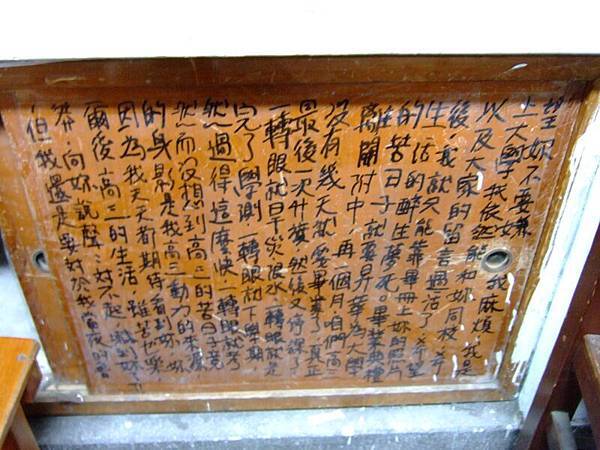 望妳不要嫌我麻煩,我是
上大學,我依然能和妳同校,希望
以及大家的留言過活了
後,我就只能靠畢冊上妳的照片
生活的醉生夢死。畢業典禮
的苦日子就要昇華為大學
離開附中,再一個月咱們高三
沒有幾天就要畢業了,真正
最後一次升獎,然後又停課了
一轉眼就 一轉眼就是
完了學測,一轉眼就下學期,
然過得這麼快,一轉眼就考
然而沒想到高三的苦日子竟
的身影是我高三動力的來源,
因為我天天都期待看到妳,妳
爾後高三的生活,雖苦也樂,
向妳說聲:對不起,謝謝妳
但我還是要對於我當夜的